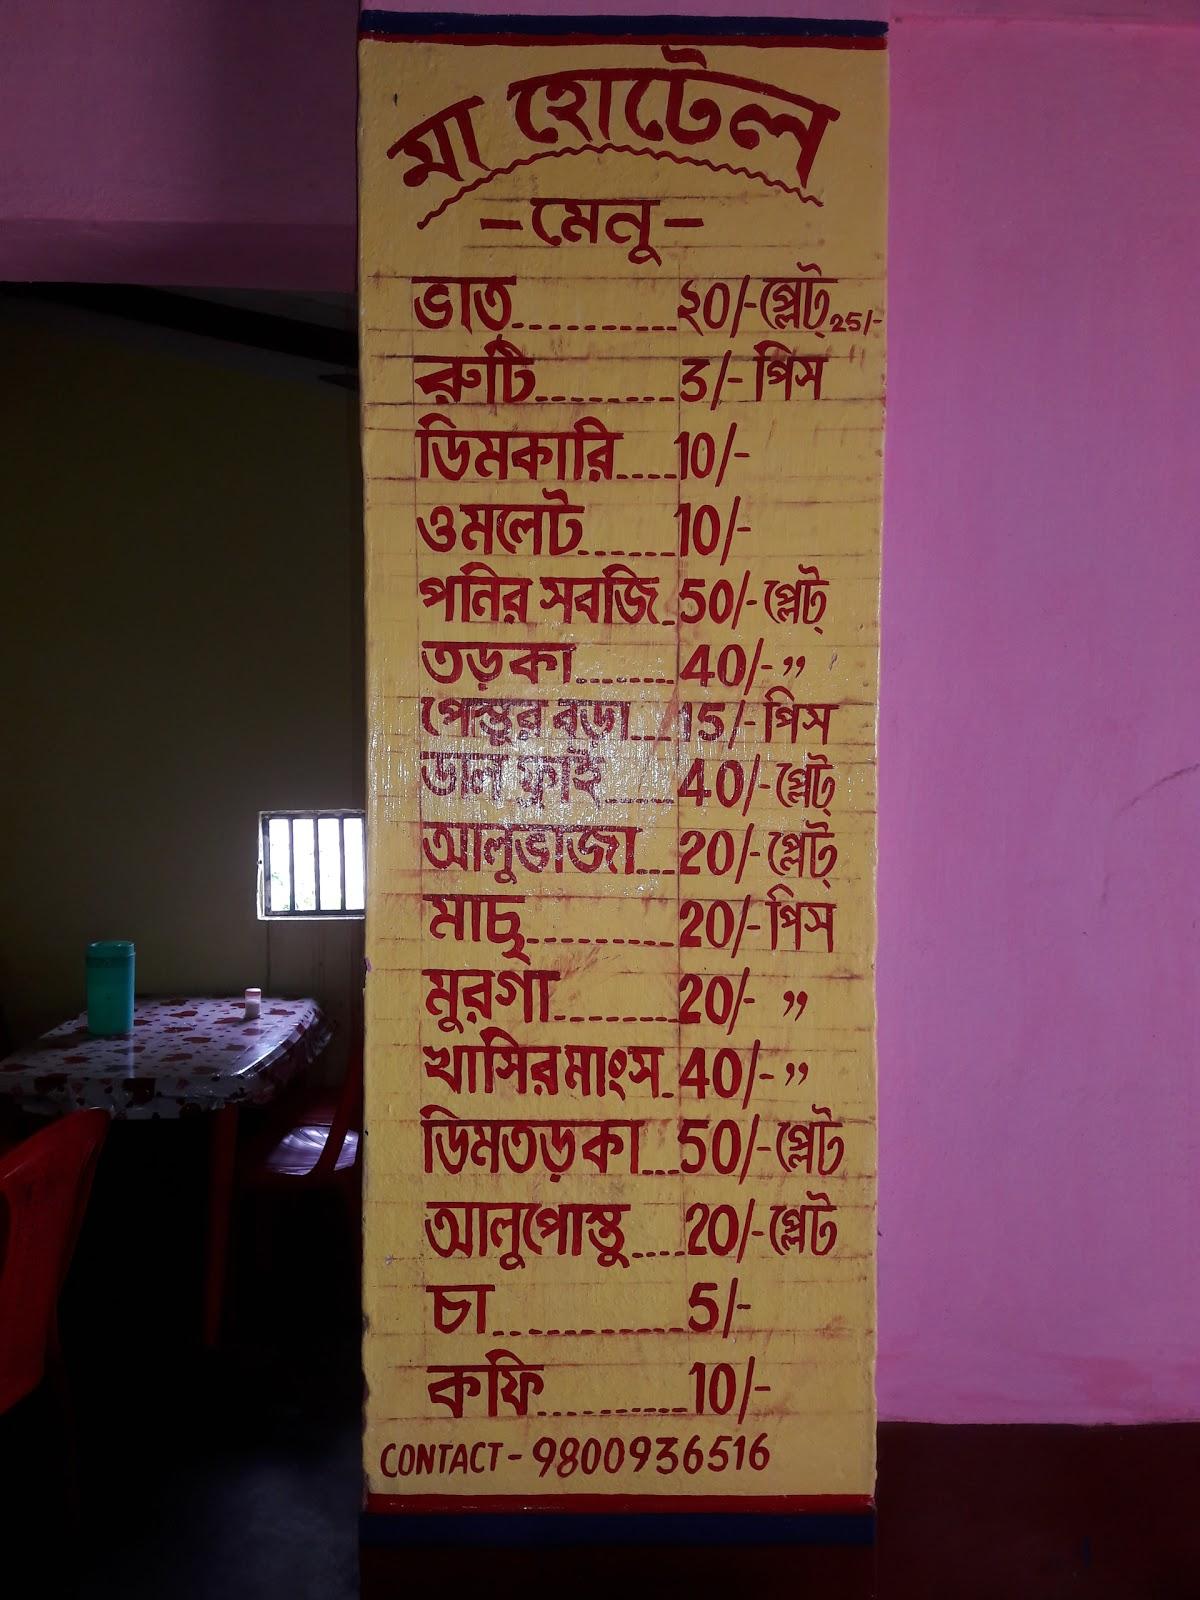 মা হোটেল
-মেনু-
ভাত..........২0/-প্লেট্ 25/-
রুটি.........3/- পিস
ডিমকারি....10/-
ওমলেট......10/-
পনির সবজি.50/-প্লেট্
তড়কা.......40/-,,
পোস্তুর বড়া...15/-পিস
ডাল ফ্রাই....40/-প্লেট্
আলুভাজা...20/-প্লেট্
মাছ..........20/-পিস
মুরগা........20/- ,,
খাসির মাংস.40/-,,
ডিমতড়কা...50/-প্লেট
আলুপোস্তু....20/-প্লেট
চা............5/-
কফি..........10/-
CONTACT-9800936516